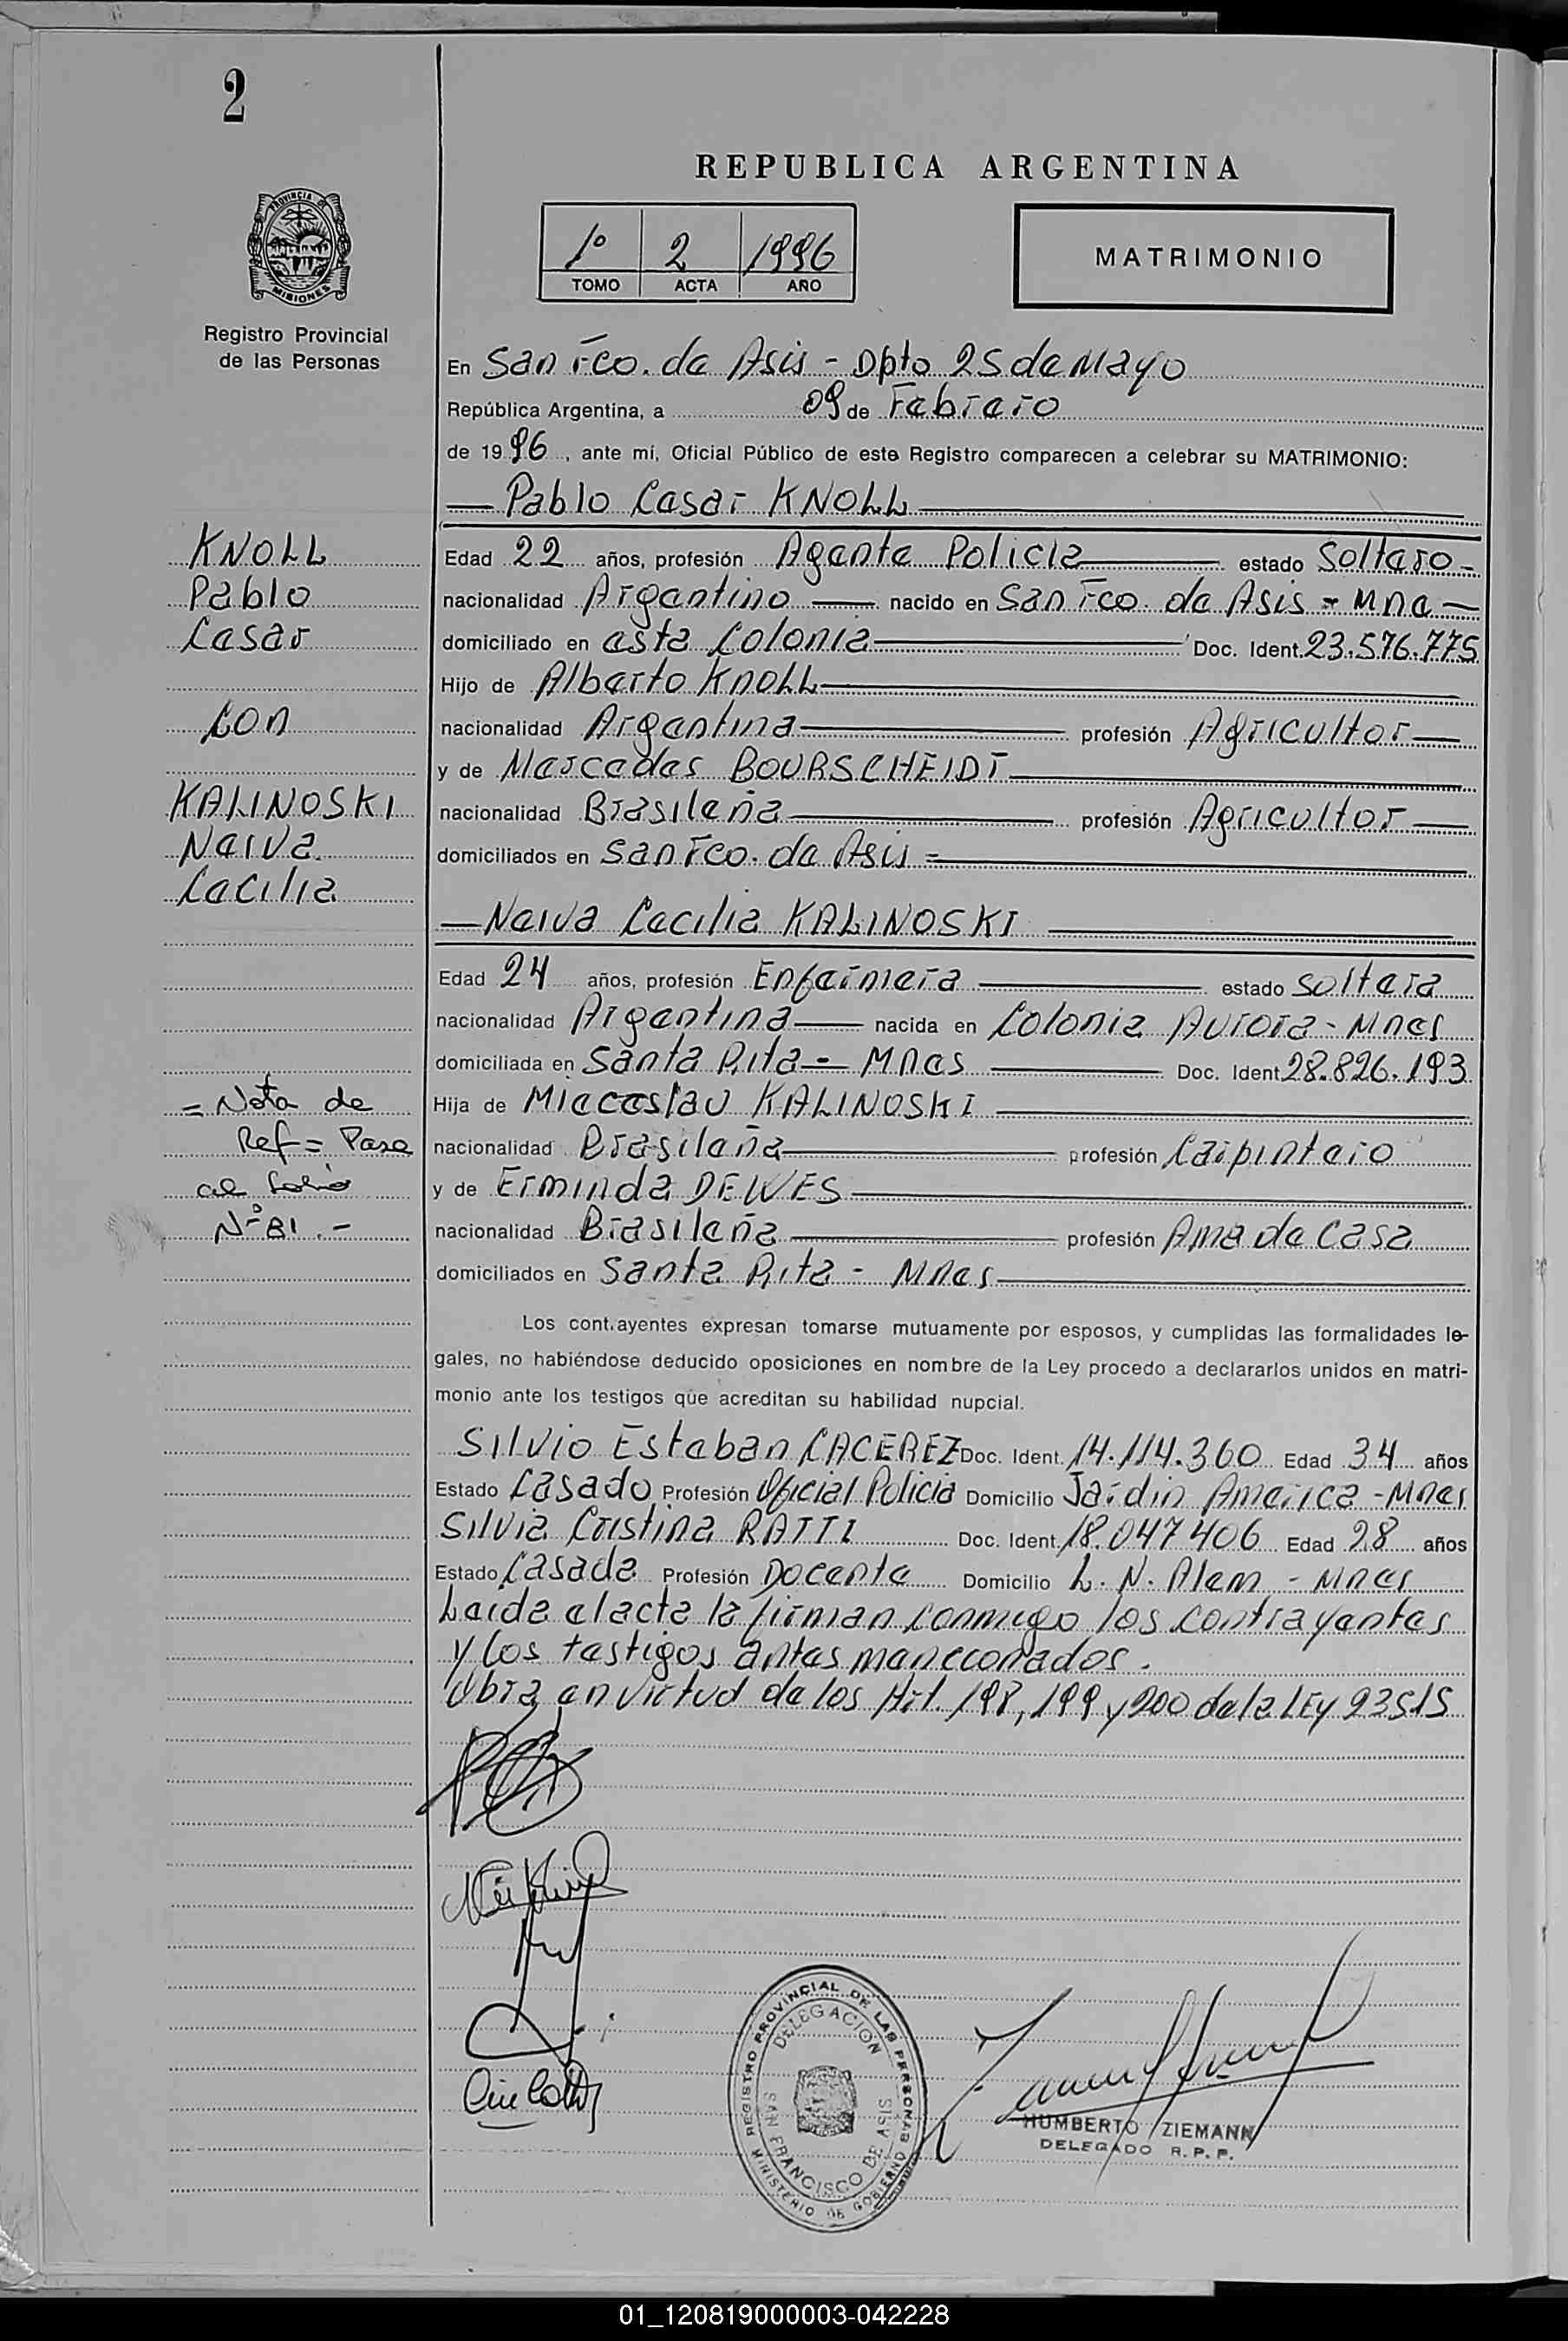 2
REPUBLICA ARGENTINA
PROVINCIA DE
MISIONES
1º 2 1996
TOMO ACTA AÑO
MATRIMONIO
Registro Provincial
de las Personas
En San Fco. de Asis - Dpto 25 de Mayo
República Argentina, a 09 de Febrero
de 1996, ante mí, Oficial Público de este Registro comparecen a celebrar su MATRIMONIO:
— Pablo Cesar KNOLL
KNOLL
Pablo
Cesar
con
KALINOSKI
Neiva
Cecilia
Edad 22 años, profesión Agente Policia estado Soltero -
nacionalidad Argentino — nacido en San Fco. de Asis - Mne —
domiciliado en esta Colonia Doc. Ident. 23.576.775
Hijo de Alberto KNOLL
nacionalidad Argentina profesión Agricultor —
y de Mercedes BOURSCHEIDT
nacionalidad Brasileña profesión Agricultor —
domiciliados en San Fco. de Asis =
— Neiva Cecilia KALINOSKI
Edad 24 años, profesión Enfermera estado soltera
nacionalidad Argentina — nacida en Colonia Aurora - Mnes
domiciliada en Santa Rita = Mnes Doc. Ident 28.826.193
= Nota de
Ref = Pase
al folio
Nº 81 . -
Hija de Mieceslau KALINOSKI
nacionalidad Brasileña profesión Carpintero
y de Erminda DEWES
nacionalidad Brasileña profesión Ama de Casa
domiciliados en Santa Rita - Mnes
Los cont.ayentes expresan tomarse mutuamente por esposos, y cumplidas las formalidades le-
gales, no habiéndose deducido oposiciones en nombre de la Ley procedo a declararlos unidos en matri-
monio ante los testigos que acreditan su habilidad nupcial.
Silvio Esteban CACEREZ Doc. Ident. 14.114.360 Edad 34 años
Estado Casado Profesión Oficial Policia Domicilio Jardin America - Mnes
Silvia Cristina RATTI Doc. Ident. 18.047406 Edad 28 años
Estado Casada Profesión Docente Domicilio L. N. Alem - Mnes
Leida el acta la firman conmigo los contrayentes
y los testigos antes menecionados.
Obra en virtud de los Art. 198, 199 y 200 de la LEY 23515
REGISTRO PROVINCIAL DE LAS PERSONAS
DELEGACION
SAN FRANCISCO DE ASIS
MINISTERIO DE GOBIERNO
HUMBERTO ZIEMANN
DELEGADO R. P. P.
01_120819000003-042228